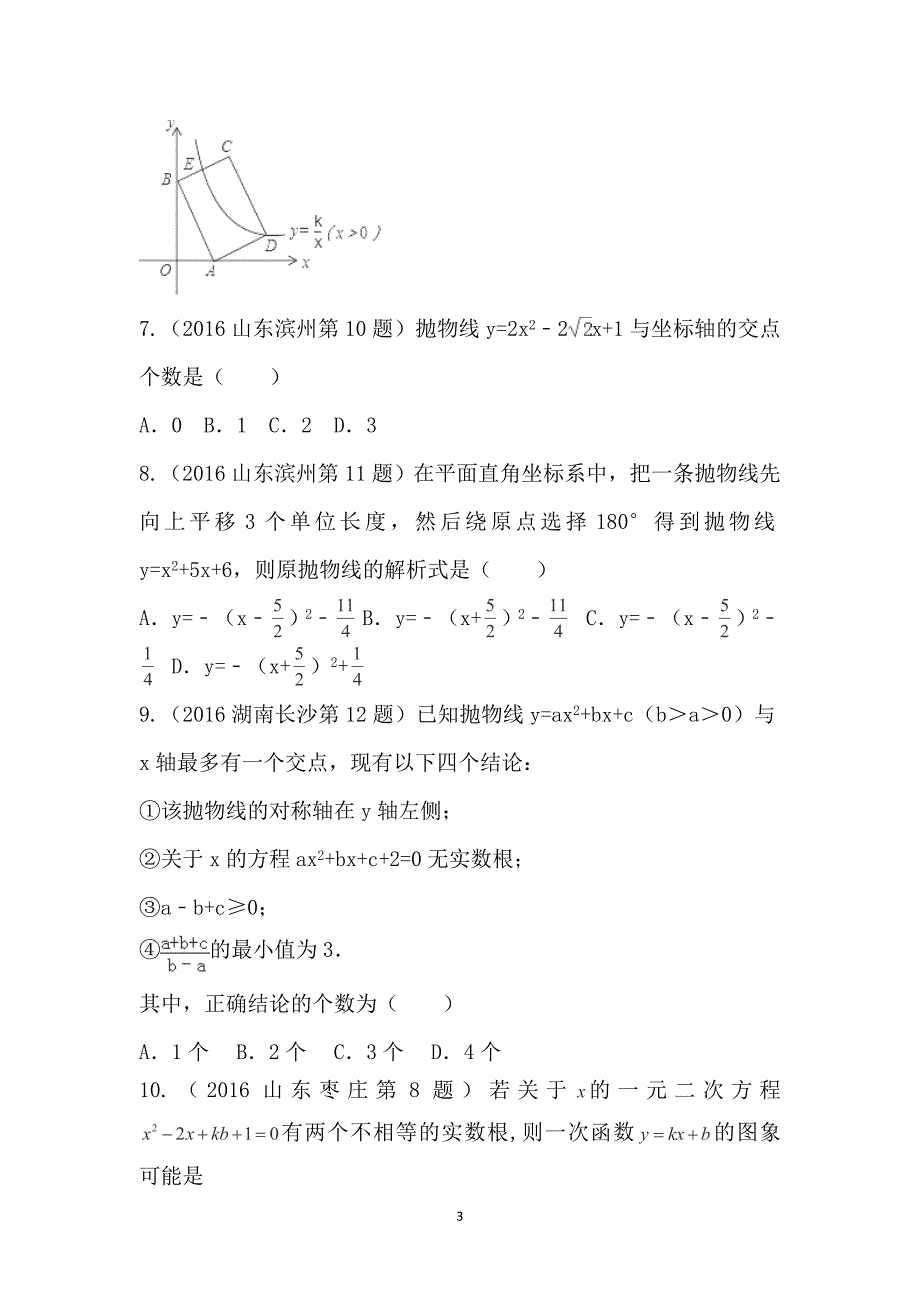 y
C
E
B
y=k/x(x>0)
D
O A x
7.（2016山东滨州第10题）抛物线y=2x²﹣2√2x+1与坐标轴的交点
个数是（　　）
A．0 B．1 C．2 D．3
8.（2016山东滨州第11题）在平面直角坐标系中，把一条抛物线先
向上平移3个单位长度，然后绕原点选择180°得到抛物线
y=x²+5x+6，则原抛物线的解析式是（　　）
A．y=﹣（x﹣5/2）²﹣11/4 B．y=﹣（x+5/2）²﹣11/4 C．y=﹣（x﹣5/2）²﹣
1/4 D．y=﹣（x+5/2）²+1/4
9.（2016湖南长沙第12题）已知抛物线y=ax²+bx+c（b＞a＞0）与
x轴最多有一个交点，现有以下四个结论：
①该抛物线的对称轴在y轴左侧；
②关于x的方程ax²+bx+c+2=0无实数根；
③a﹣b+c≥0；
④(a+b+c)/(b-a)的最小值为3．
其中，正确结论的个数为（　　）
A．1个 B．2个 C．3个 D．4个
10.（2016山东枣庄第8题）若关于x的一元二次方程
x²−2x+kb+1=0有两个不相等的实数根,则一次函数y=kx+b的图象
可能是
3